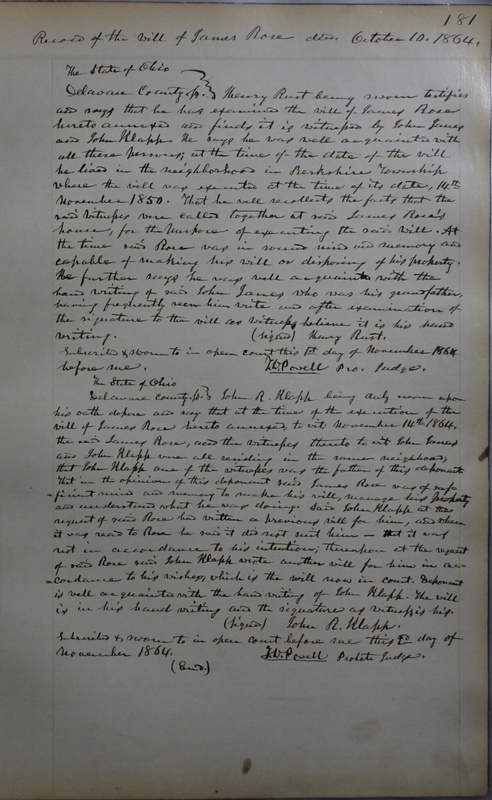 181
Record of the will of James Rose decd. October 10. 1864.
The State of Ohio
Delaware County, ss. } Henry Rust being sworn testifies
and says that he has examined the will of James Rose
hereto annexed and finds it is witnessed by John Janes
and John Klapp. He says he was well acquainted with
all these persons; at the time of the date of the will
he lived in the neighborhood in Berkshire Township
where the will was executed at the time of its date, 14th
November 1850. That he well recollects the facts that the
said witnesses were called together at said James Rose's
house, for the purpose of executing the said will. At
the time said Rose was in sound mind and memory and
capable of making his will or disposing of his property.
He further says he was well acquainted with the
hand writing of said John Janes who was his grandfather,
having frequently seen him write and after examination of
the signature to the will as witness believe it is his hand
writing. (signed) Henry Rust.
Subscribed & sworn to in open court this 1st day of November 1864
before me. T.W. Powell Pro. Judge.
The State of Ohio
Delaware County, ss. } John R. Klapp being duly sworn upon
his oath depose and say that at the time of the execution of the
will of James Rose hereto annexed, to wit, November 14th 1864,
the said James Rose, and the witnesses thereto to wit John Janes
and John Klapp were all residing in the same neighborhood,
that John Klapp one of the witnesses was the father of this deponent
that in the opinion of this deponent said James Rose was of suf-
-ficient mind and memory to make his will, manage his property
and understand what he was doing. Said John Klapp at the
request of said Rose had written a previous will for him, and when
it was read to Rose he said it did not suit him - that it was
not in accordance to his intention; thereupon at the request
of said Rose said John Klapp wrote another will for him in ac-
-cordance to his wishes, which is the will now in court. Deponent
is well acquainted with the hand writing of John Klapp. The will
is in his hand writing and the signature as witness is his.
(Signed) John R. Klapp.
Subscribed & sworn to in open court before me this 1st day of
November 1864. T.W. Powell Probate Judge.